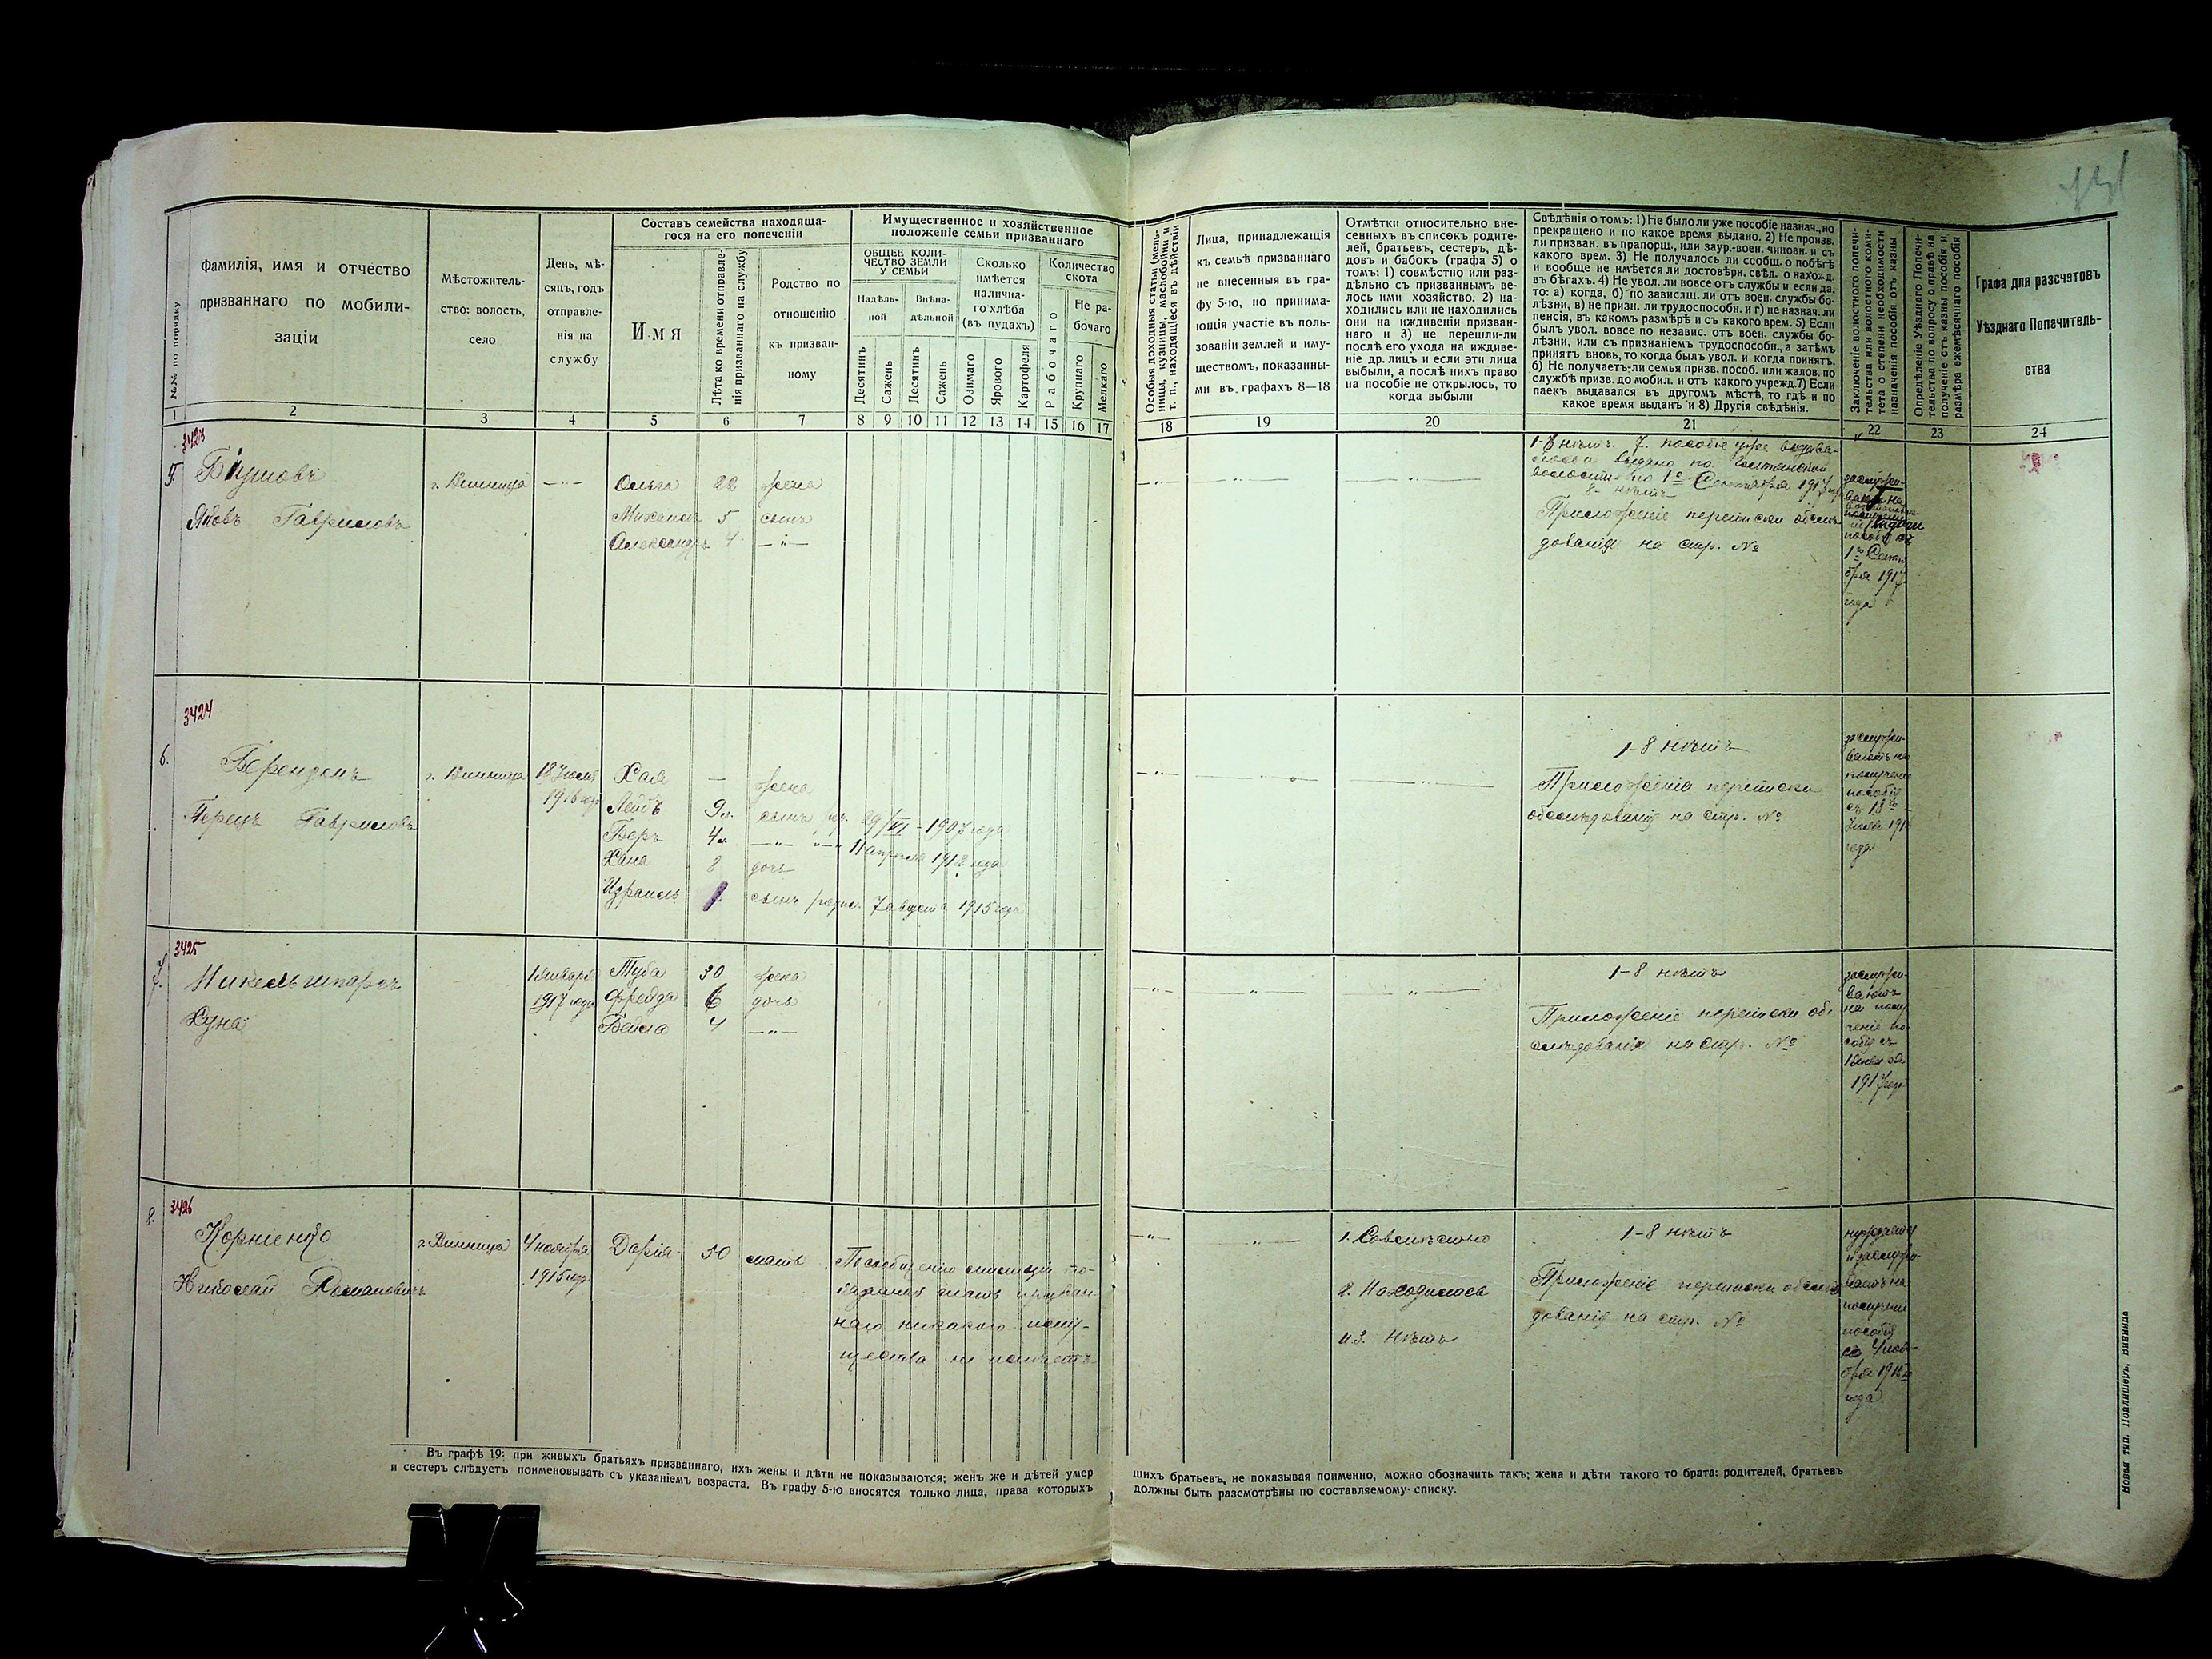 №№ по порядку
Фамилія, имя и отчество
призваннаго по мобили-
заціи
Мѣстожитель-
ство: волость,
село
День, мѣ-
сяцъ, годъ
отправле-
нія на
службу
Составъ семейства находяща-
гося на его попеченіи
Имя
Лѣта ко времени отправле-
нія призваннаго на службу
Родство по
отношенію
къ призван-
ному
Имущественное и хозяйственное
положеніе семьи призваннаго
ОБЩЕЕ КОЛИ-
ЧЕСТВО ЗЕМЛИ
У СЕМЬИ
Надѣль-
ной
Внѣна-
дѣльной
Сколько
имѣется
налична-
го хлѣба
(въ пудахъ)
Количество
скота
Не ра-
бочаго
Десятинъ
Сажень
Десятинъ
Сажень
Озимаго
Ярового
Картофеля
Рабочаго
Крупнаго
Мелкаго
Особыя доходныя статьи (мель-
ницы, кузницы, маслобойни и
т. п., находящіеся въ дѣйствіи
Лица, принадлежащія
къ семьѣ призваннаго
не внесенныя въ гра-
фу 5-ю, но принима-
ющія участіе въ поль-
зованіи землей и иму-
ществомъ, показанны-
ми въ графахъ 8—18
Отмѣтки относительно вне-
сенныхъ въ списокъ родите-
лей, братьевъ, сестеръ, дѣ-
довъ и бабокъ (графа 5) о
томъ: 1) совмѣстно или раз-
дѣльно съ призваннымъ ве-
лось ими хозяйство, 2) на-
ходились или не находились
они на иждивеніи призван-
наго и 3) не перешли-ли
послѣ его ухода на иждиве-
ніе др. лицъ и если эти лица
выбыли, а послѣ нихъ право
на пособіе не открылось, то
когда выбыли
Свѣдѣнія о томъ: 1) Не было ли уже пособіе назнач., но
прекращено и по какое время выдано. 2) Не произв.
ли призван. въ прапорщ., или заур.-воен. чиновн. и съ
какого врем. 3) Не получалось ли ссобщ. о побѣгѣ
и вообще не имѣется ли достовѣрн. свѣд. о нахожд.
въ бѣгахъ. 4) Не увол. ли вовсе отъ службы и если да,
то: а) когда, б) по зависящ. ли отъ воен. службы бо-
лѣзни, в) не призн. ли трудоспособн. и г) не назнач. ли
пенсія, въ какомъ размѣрѣ и съ какого врем. 5) Если
былъ увол. вовсе по независ. отъ воен. службы бо-
лѣзни, или съ признаніемъ трудоспособн., а затѣмъ
принятъ вновь, то когда былъ увол. и когда принятъ.
6) Не получаетъ-ли семья призв. пособ. или жалов. по
службѣ призв. до мобил. и отъ какого учрежд. 7) Если
паекъ выдавался въ другомъ мѣстѣ, то гдѣ и по
какое время выданъ и 8) Другія свѣдѣнія.
Заключеніе волостного попечи-
тельства или волостного коми-
тета о степени необходимости
назначенія пособія отъ казны
Опредѣленіе Уѣзднаго Попечи-
тельства по вопросу о правѣ на
полученіе отъ казны пособія и
размѣра ежемѣсячнаго пособія
Графа для разсчетовъ
Уѣзднаго Попечитель-
ства
1 2 3 4 5 6 7 8 9 10 11 12 13 14 15 16 17 18 19 20 21 22 23 24
3423
5.
Яковъ Гавриловъ
г. Винница
Ольга 22 жена
Михаилъ 5 сынъ
Александръ 4 —"—
1-8 нѣтъ. 7. пособіе уже выдава-
по 1е Сентября 1917
8- нѣтъ
Приложеніе переписки обслѣ-
дованія на стр. №
1го Сентя
бря 1917
года
3424
6.
Беренденъ
Герецъ Гавриловъ
г. Винница
18 Іюля
1916 года
Хая — жена
Лейбъ 9 л. сынъ род. 29/VI - 1907 года
Беръ 4 л. —"— "— 11 апрѣля 1912 года
Хана 8 дочь
Израиль сынъ родил. 7 августа 1915 года
1-8 нѣтъ
Приложенія переписки
обслѣдованія на стр. №
заслужи-
ваетъ на
полученіе
пособія
съ 18го
Іюля 191
года
3425
7.
Никельшпаръ
Хуна
1 Января
1917 года
Туба 30 жена
Фрейда 6 дочь
Бейла 4 —"—
1-8 нѣтъ
Приложеніе переписки об-
слѣдованія на стр. №
заслужи-
ваютъ
на полу-
ченіе по-
собія съ
1 Января
1917 года
3426
8.
Корніенко
Николай Романовичъ
г. Винница
4 ноября
1915 года
Дарія 50 мать
По сообщенію милиціи по-
мать призван-
наго никакого иму-
щества не имѣетъ
1. Совмѣстно
2. Находилась
и 3. Нѣтъ
1-8 нѣтъ
Приложеніе переписки обслѣ-
дованія на стр. №
нуждается
и заслужи-
ваетъ на
полученіе
пособія
съ 4 ноя-
бря 1915
года
Въ графѣ 19: при живыхъ братьяхъ призваннаго, ихъ жены и дѣти не показываются; женъ же и дѣтей умер
и сестеръ слѣдуетъ поименовывать съ указаніемъ возраста. Въ графу 5-ю вносятся только лица, права которыхъ
шихъ братьевъ, не показывая поименно, можно обозначить такъ; жена и дѣти такого то брата: родителей, братьевъ
должны быть разсмотрѣны по составляемому списку.